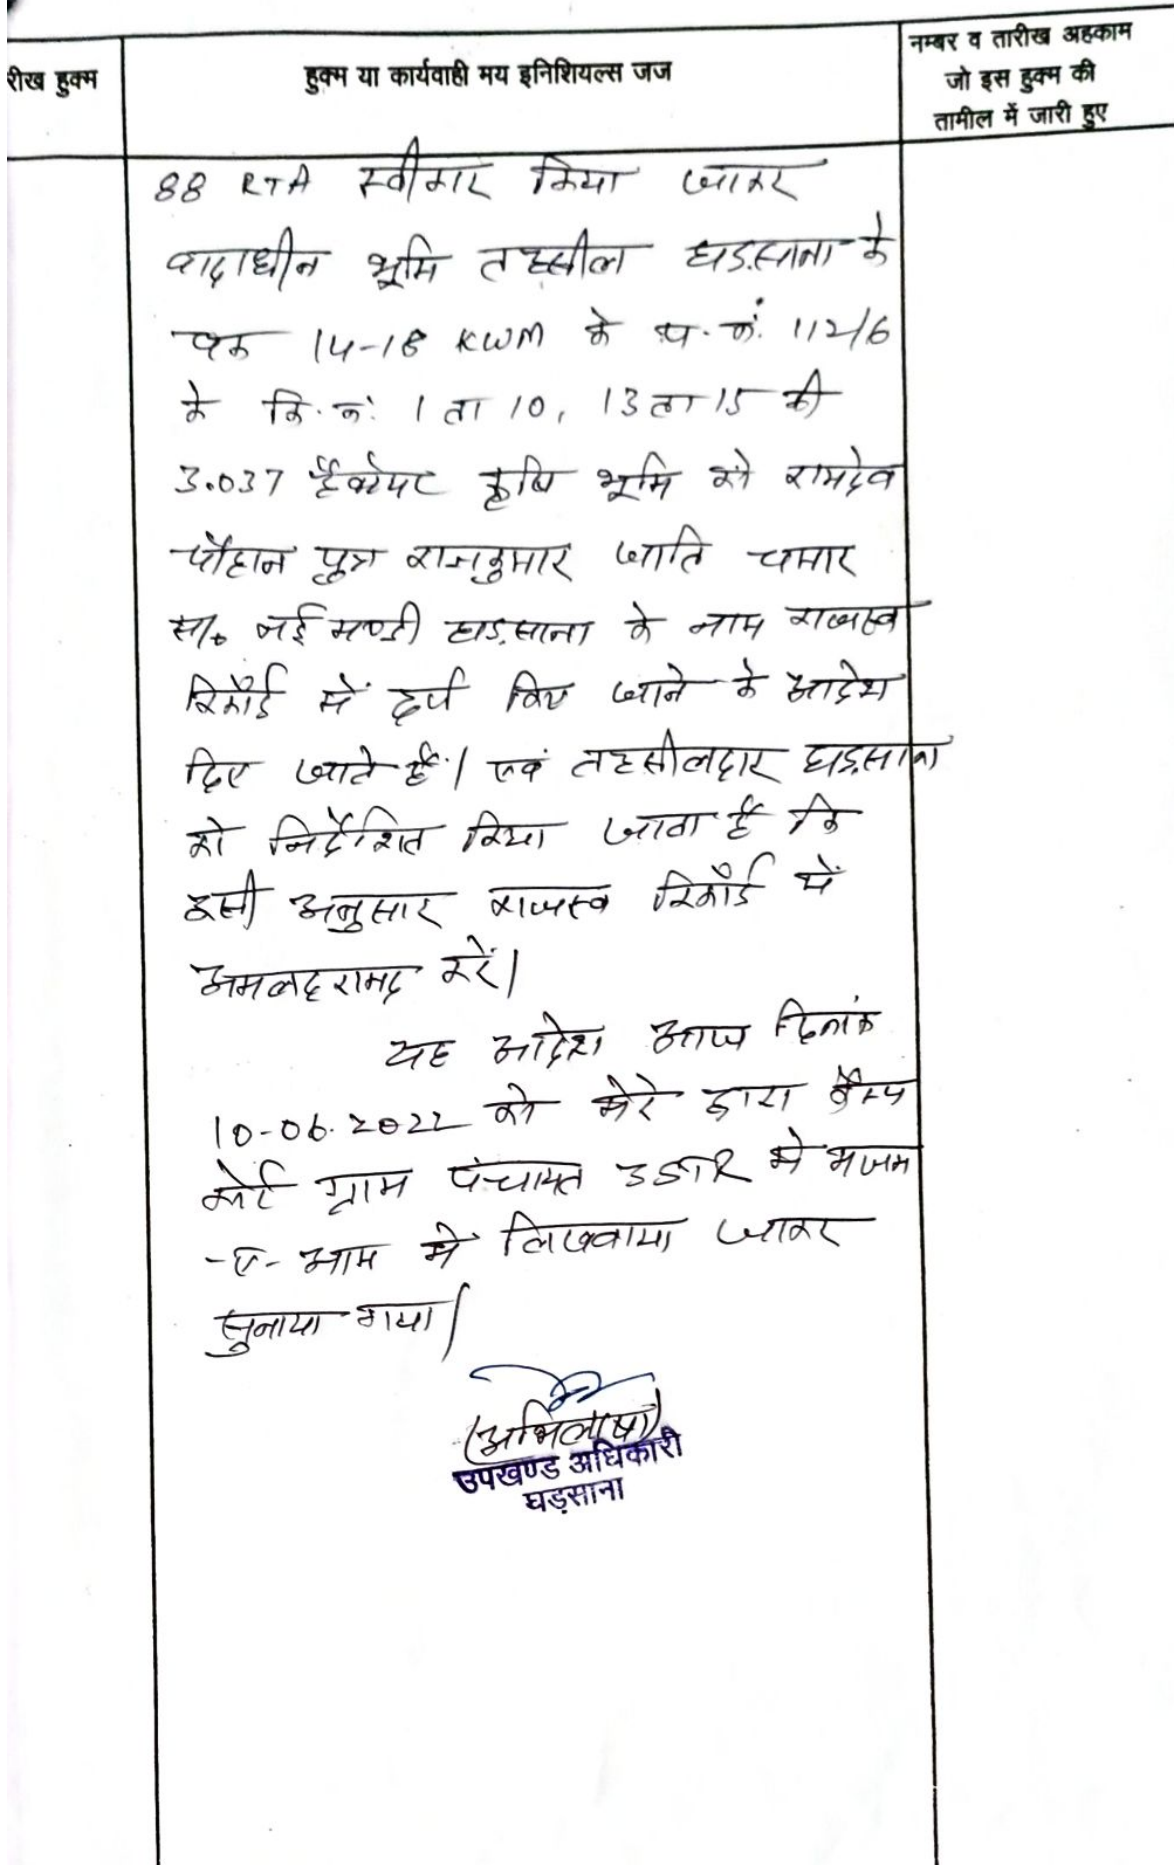 रीख हुक्म
हुक्म या कार्यवाही मय इनिशियल्स जज
नम्बर व तारीख अहकाम
जो इस हुक्म की
तामील में जारी हुए
88 RTA स्वीकार किया जाकर
वादाधीन भूमि तहसील घड़साना के
चक 14-18 KWM के प.नं. 112/6
के कि.नं. 1 ता 10, 13 ता 15 की
3.037 हैक्टेयर कृषि भूमि को रामदेव
चौहान पुत्र राजकुमार जाति चमार
सा० नई मण्डी घड़साना के नाम राजस्व
रिकॉर्ड में दर्ज किए जाने के आदेश
दिए जाते हैं। एवं तहसीलदार घड़साना
को निर्देशित किया जाता है कि
इसी अनुसार राजस्व रिकॉर्ड में
अमलदरामद करें।
यह आदेश आज दिनांक
10-06-2022 को मेरे द्वारा कैम्प
कोर्ट ग्राम पंचायत 3 STR में मजम
-ए- आम में लिखवाया जाकर
सुनाया गया।
(अभिलाषा)
उपखण्ड अधिकारी
घड़साना